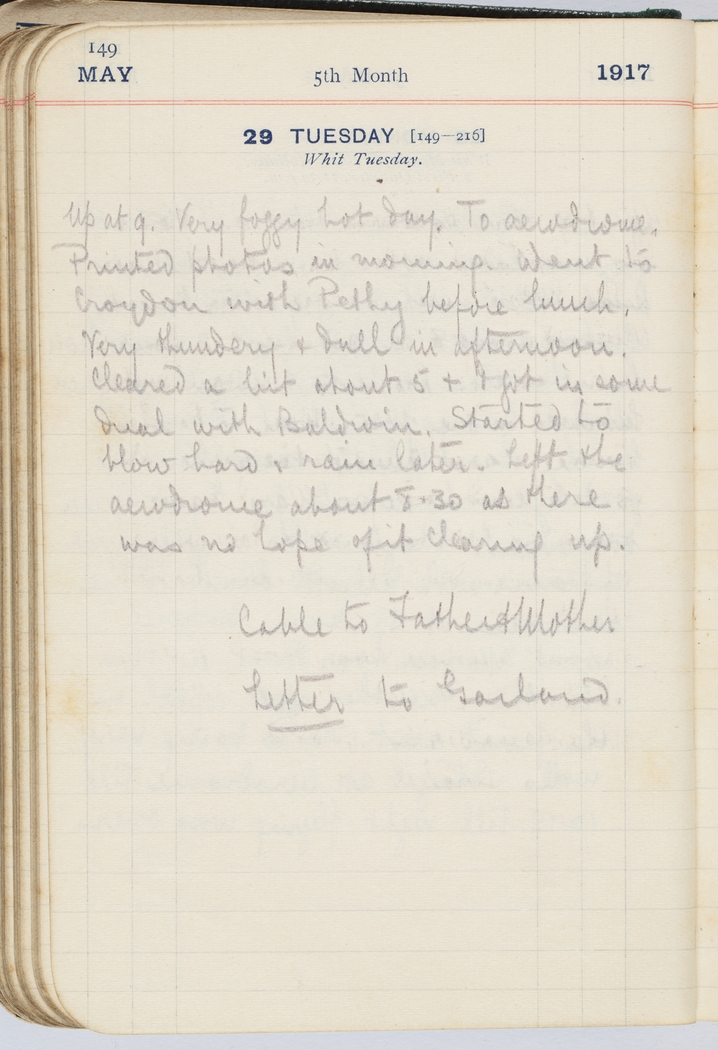 149
MAY 5th Month 1917
29 TUESDAY [149–216]
Whit Tuesday.
Up at 9. Very foggy hot day. To aerodrome.
Printed photos in morning. Went to
Croydon with Pethy before lunch.
Very thundery & dull in afternoon.
Cleared a bit about 5 & I got in some
dual with Baldwin. Started to
blow hard & rain later. Left the
aerodrome about 8.30 as there
was no hope of it clearing up.
Cable to Father & Mother
Letter to Garland.